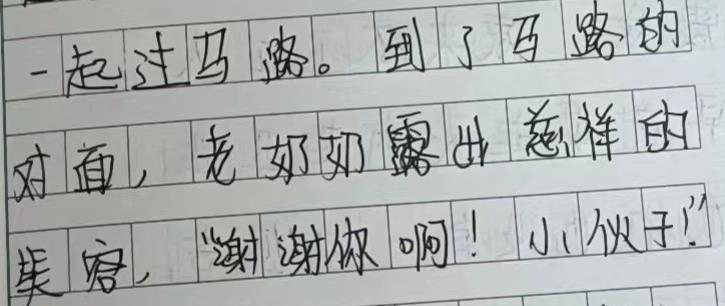 一起过马路。到了马路的
对面，老奶奶露出慈祥的
笑容，“谢谢你啊！小伙子！”